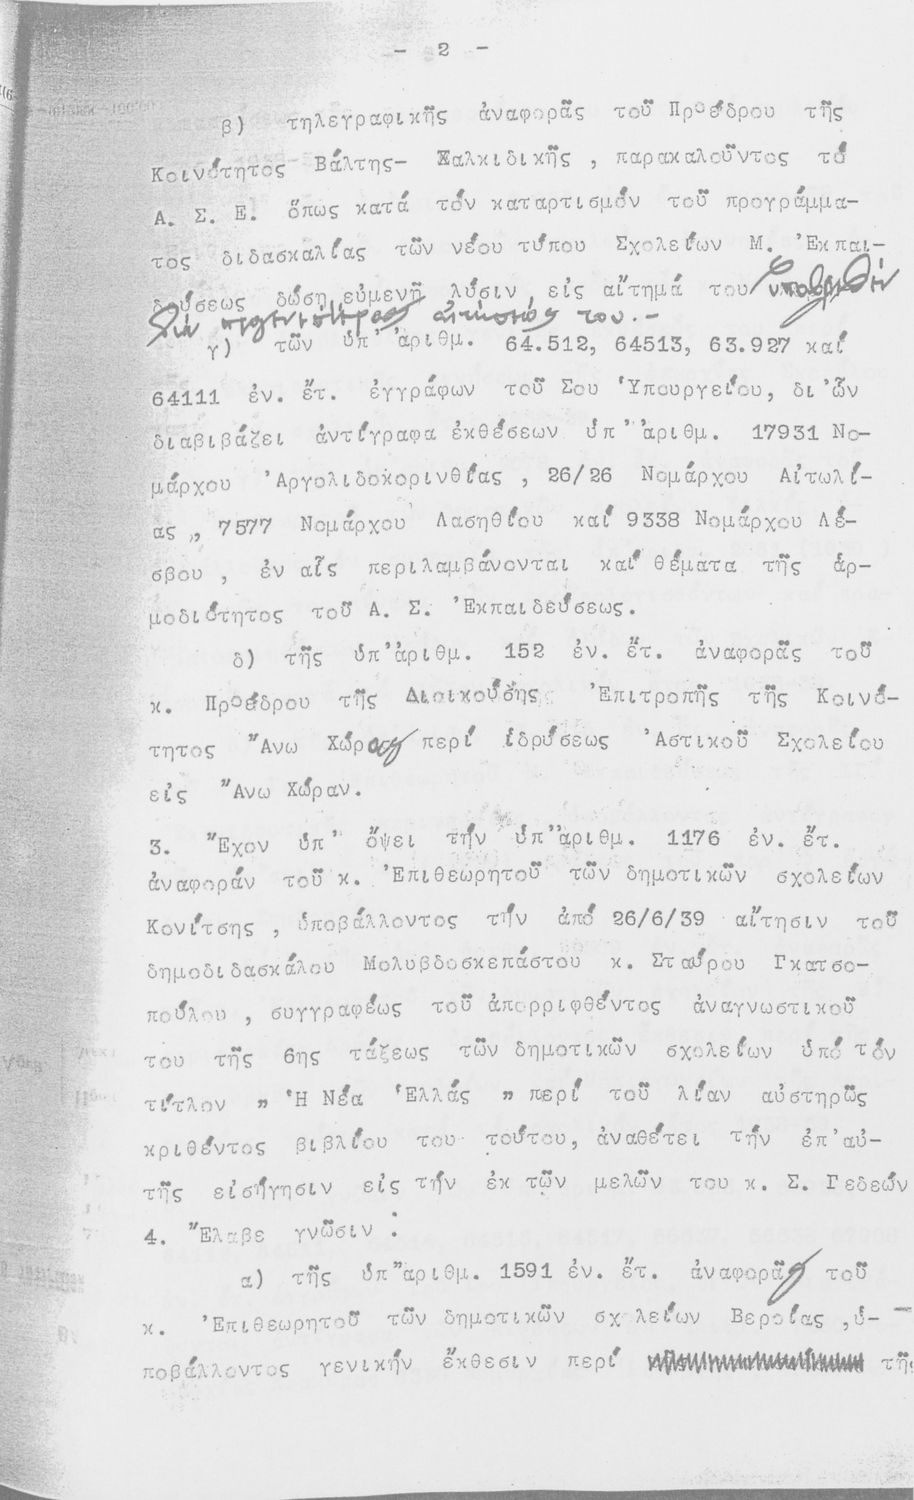 - 2 -
β) τηλεγραφικῆς ἀναφορᾶς τοῦ Προέδρου τῆς
Κοινότητος Βάλτης- Χαλκιδικῆς , παρακαλοῦντος τό
Α. Σ. Ε. ὅπως κατά τόν καταρτισμόν τοῦ προγράμμα-
τος διδασκαλίας τῶν νέου τύπου Σχολείων Μ. Ἐκπαι-
δεύσεως δώσῃ εὐμενῆ λύσιν εἰς αἴτημά του ὑποβληθέν
αἰτήσεώς του.-
γ) τῶν ὑπ' ἀριθμ. 64.512, 64513, 63.927 καί
64111 ἐν. ἔτ. ἐγγράφων τοῦ Σου Ὑπουργείου, δι'ὧν
διαβιβάζει ἀντίγραφα ἐκθέσεων ὑπ' ἀριθμ. 17931 Νο-
μάρχου Ἀργολιδοκορινθίας , 26/26 Νομάρχου Αἰτωλί-
ας ,, 7577 Νομάρχου Λασηθίου καί 9338 Νομάρχου Λέ-
σβου , ἐν αἷς περιλαμβάνονται καί θέματα τῆς ἁρ-
μοδιότητος τοῦ Α. Σ. Ἐκπαιδεύσεως.
δ) τῆς ὑπ'ἀριθμ. 152 ἐν. ἔτ. ἀναφορᾶς τοῦ
κ. Προέδρου τῆς Διοικούσης Ἐπιτροπῆς τῆς Κοινό-
τητος Ἄνω Χώρας περί ἱδρύσεως Ἀστικοῦ Σχολείου
εἰς Ἄνω Χώραν.
3. Ἔχον ὑπ' ὄψει τήν ὑπ' ἀριθμ. 1176 ἐν. ἔτ.
ἀναφοράν τοῦ κ. Ἐπιθεωρητοῦ τῶν δημοτικῶν σχολείων
Κονίτσης , ὑποβάλλοντος τήν ἀπό 26/6/39 αἴτησιν τοῦ
δημοδιδασκάλου Μολυβδοσκεπάστου κ. Σταύρου Γκατσο-
πούλου , συγγραφέως τοῦ ἀπορριφθέντος ἀναγνωστικοῦ
του τῆς 6ης τάξεως τῶν δημοτικῶν σχολείων ὑπό τόν
τίτλον " Ἡ Νέα Ἑλλάς " περί τοῦ λίαν αὐστηρῶς
κριθέντος βιβλίου του τούτου, ἀναθέτει τήν ἐπ'αὐ-
τῆς εἰσήγησιν εἰς τήν ἐκ τῶν μελῶν του κ. Σ. Γεδεών
4. Ἔλαβε γνῶσιν :
α) τῆς ὑπ' ἀριθμ. 1591 ἐν. ἔτ. ἀναφορᾶς τοῦ
κ. Ἐπιθεωρητοῦ τῶν δημοτικῶν σχολείων Βεροίας ,ὑ-
ποβάλλοντος γενικήν ἔκθεσιν περί τῆς